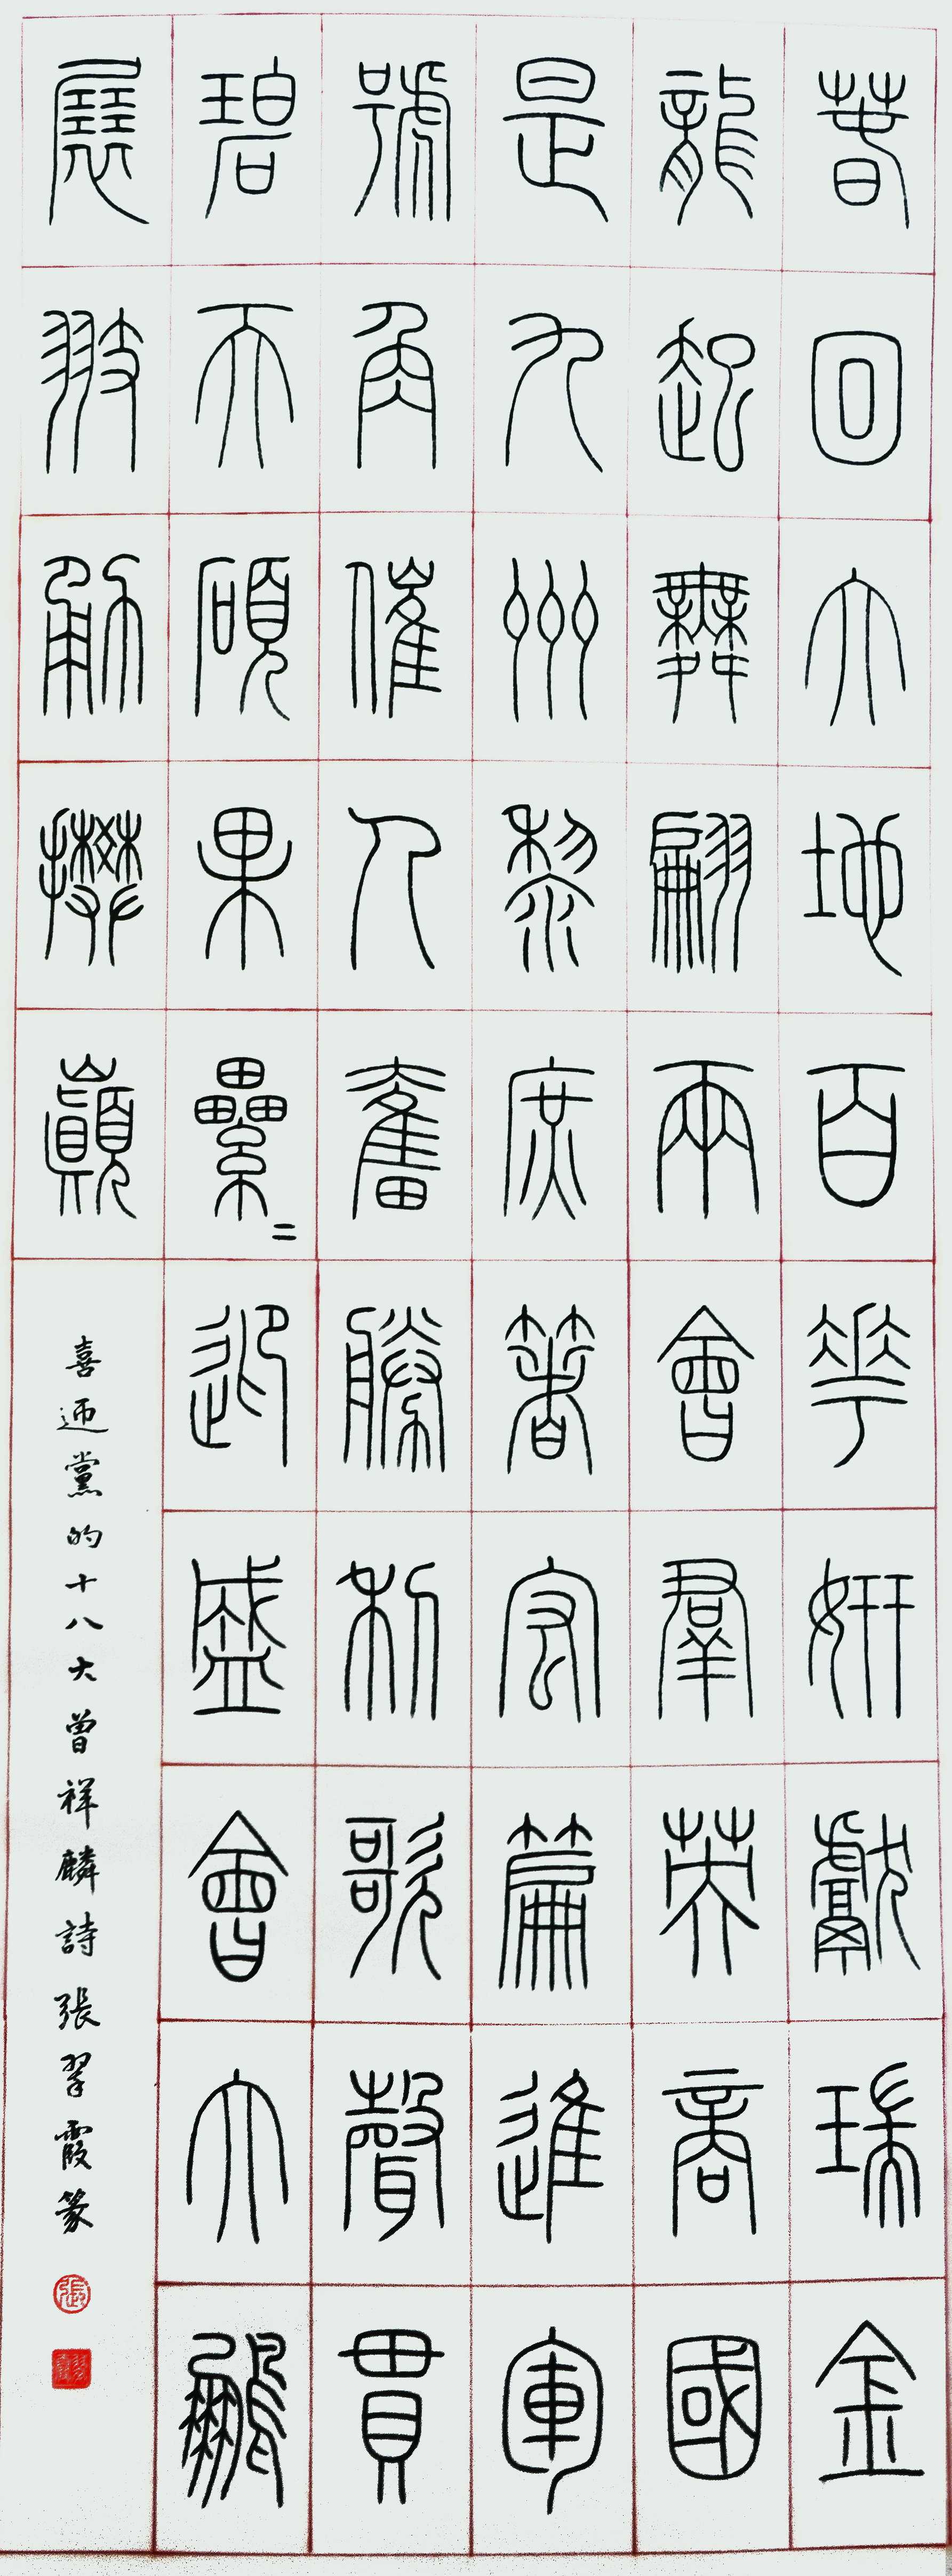 春回大地百花妍獻瑞金
龍起舞翩兩會羣英商國
是九州黎庶著宏篇進軍
號角催人奮勝利歌聲貫
碧天碩果纍〻迎盛會大鵬
展翅勇攀巔
喜迎黨的十八大曾祥麟詩張翠霞篆
張